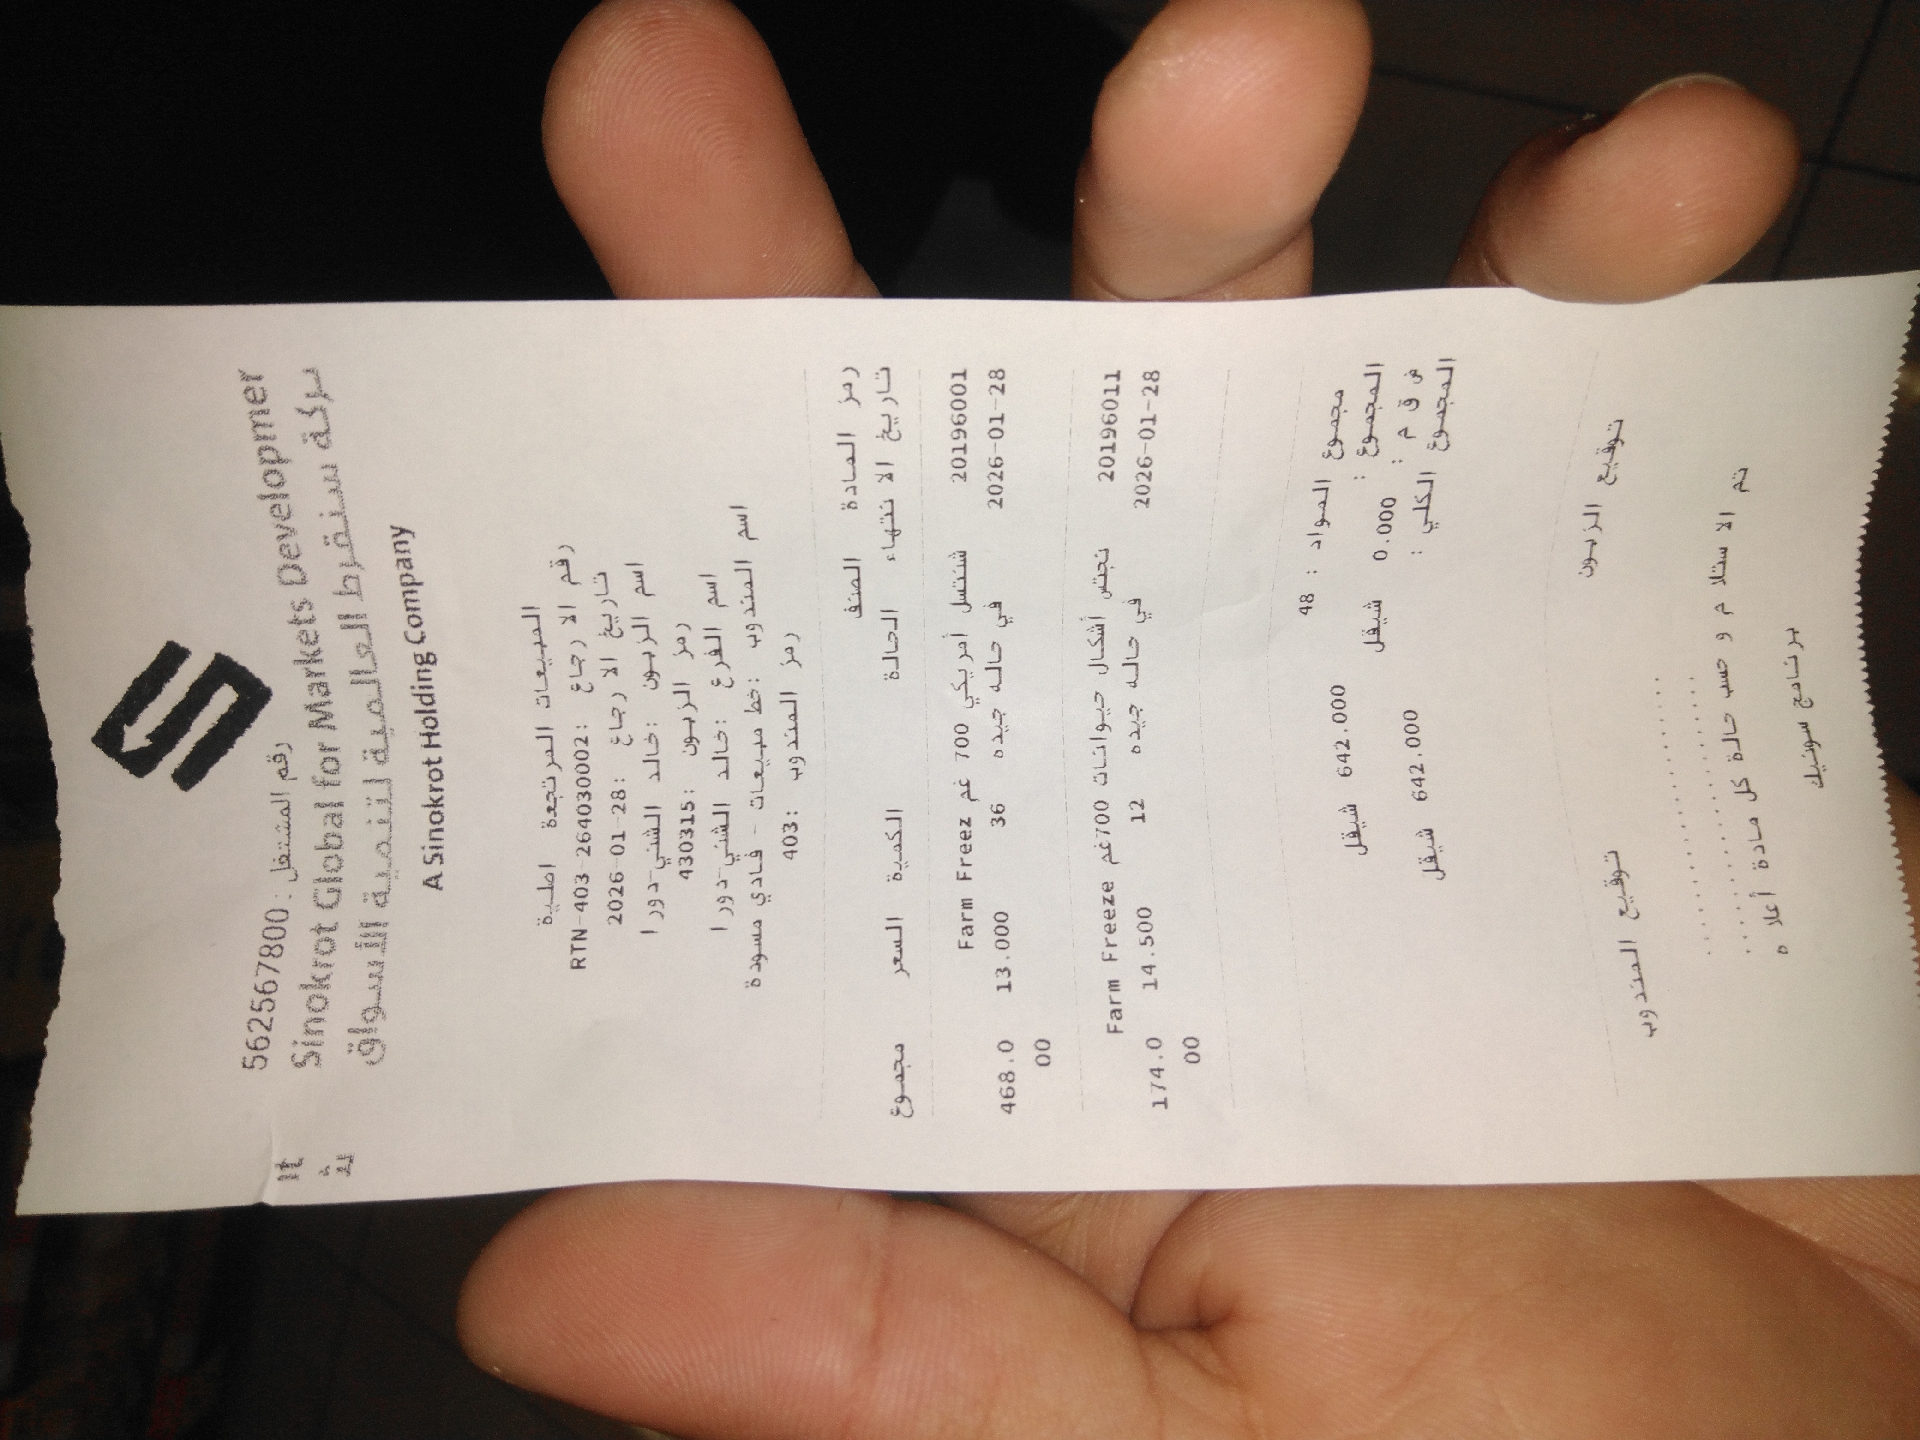 562567800: رقم المشتغل
Sinokrot Global for Markets Developmer
nt
شركة سنقرط العالمية لتنمية الأسواق
A Sinokrot Holding Company
المبيعات المرتجعة اصلية
رقم الارجاع :RTN-403-264030002
تاريخ الارجاع :2026-01-28
اسم الزبون :خالد الشني-دورا
رمز الزبون :430315
اسم الفرع :خالد الشني-دورا
اسم المندوب :خط مبيعات - فادي مسودة
رمز المندوب :403
رمز المادة الصنف
تاريخ الانتهاء الحالة الكمية السعر مجموع
20196001 شنتسل أمريكي 700 غم Farm Freez
2026-01-28 في حاله جيده 36 13.000 468.0
00
20196011 نجتس أشكال حيوانات 700غم Farm Freeze
2026-01-28 في حاله جيده 12 14.500 174.0
00
مجموع المواد : 48
المجموع : 642.000 شيقل
ض ق م : 0.000 شيقل
المجموع الكلي : 642.000 شيقل
توقيع الزبون توقيع المندوب
تم الاستلام و حسب حالة كل مادة أعلاه
برنامج سونيك